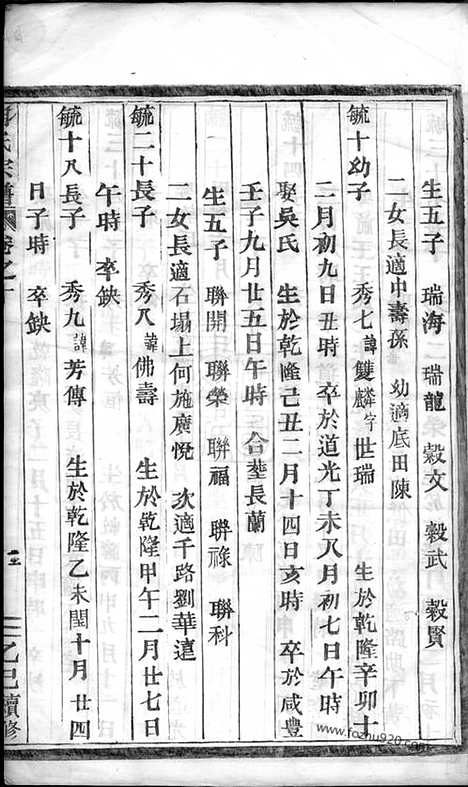 生五子 瑞海 瑞龍 榖文 榖武 榖賢
二女長適中壽孫 幼適底田陳
毓十幼子 秀七諱雙麟字世瑞 生於乾隆辛卯十
二月初九日丑時 卒於道光丁未八月初七日午時
娶吳氏 生於乾隆己丑二月十四日亥時 卒於咸豐
壬子九月廿五日午時 合塟長蘭
生五子 聯開 聯榮 聯福 聯祿 聯科
二女長適石塌上何施廣悅 次適千路劉華𨗿
毓二十長子 秀八諱佛壽 生於乾隆甲午二月廿七日
午時 卒缺
毓十八長子 秀九諱芳傳 生於乾隆乙未閏十月廿四
日子時 卒缺
氏宗譜 卷之十
乙巳續修
www.fozhu920.com